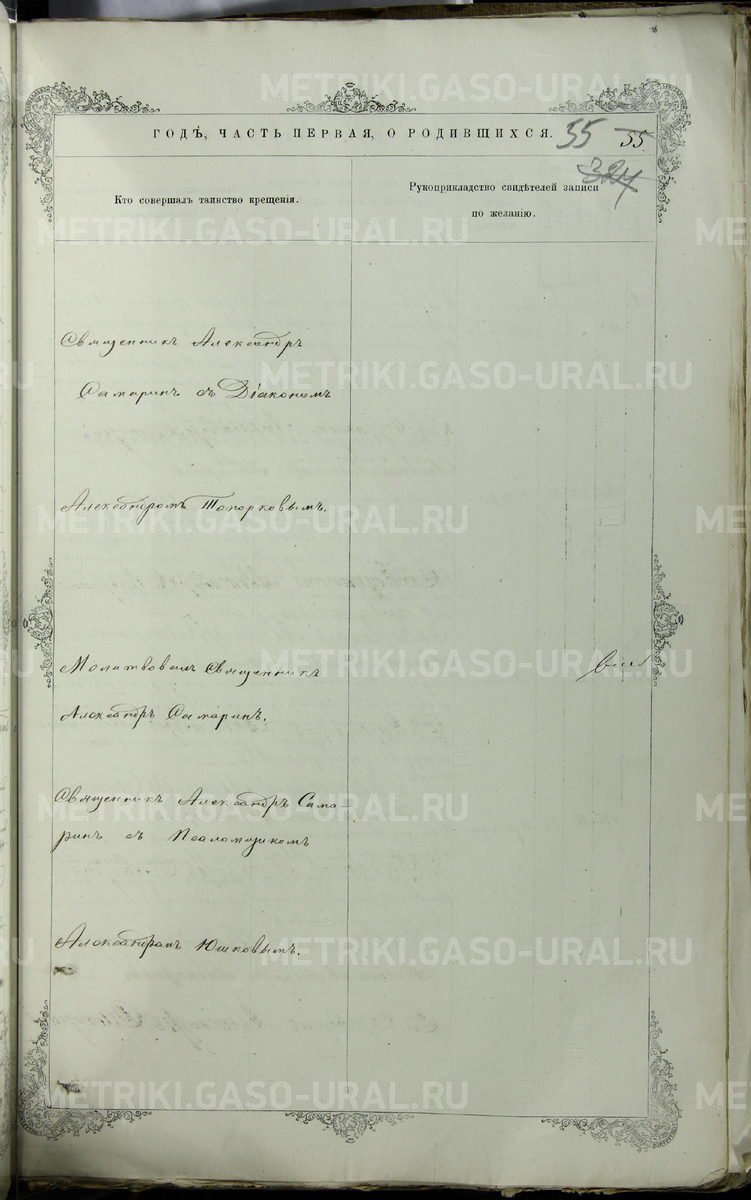 ГОДѢ, ЧАСТЬ ПЕРВАЯ, О РОДИВШИХСЯ. 55 55
324
Кто совершалъ таинство крещенія.
Рукоприкладство свидѣтелей записи
по желанію.
Священникъ Александръ
Самаринъ съ Діакономъ
Александромъ Топорковымъ.
Молитвовалъ Священникъ
Александръ Самаринъ.
Священникъ Александръ Сама-
ринъ съ Псаломщикомъ
Александромъ Юшковымъ.
METRIKI.GASO-URAL.RU